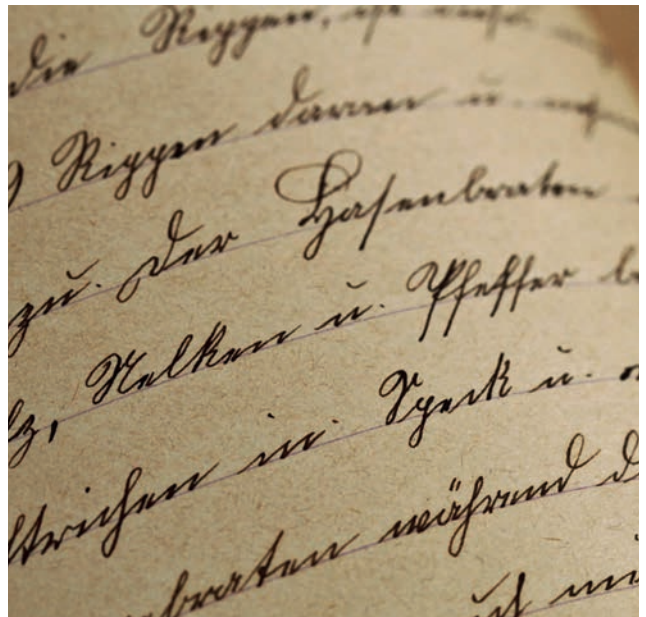 die Rippen, ist
Rippen daran u.
zu. Der Hasenbraten
lz, Nelken u. Pfeffer b
strichen in Speck u.
braten während d